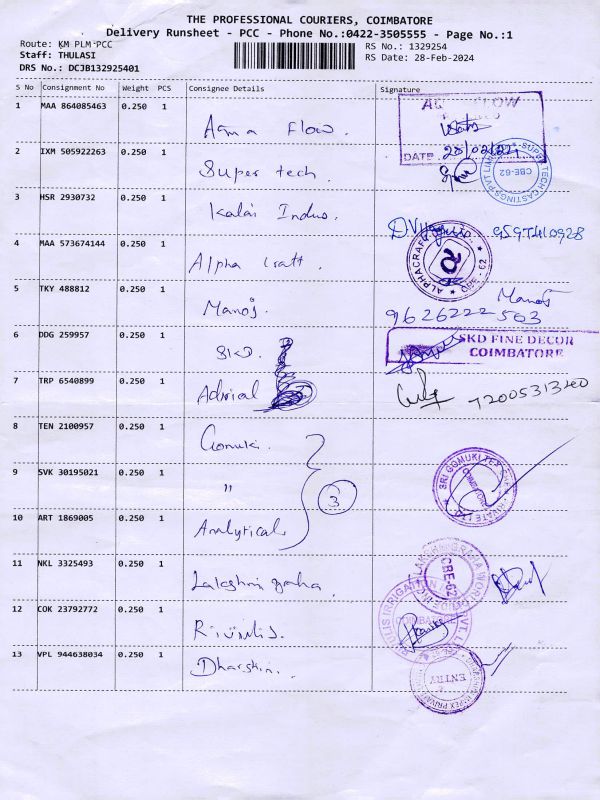 THE PROFESSIONAL COURIERS, COIMBATORE
Delivery Runsheet - PCC - Phone No.:0422-3505555 - Page No.:1
Route: KM PLM-PCC
RS No.: 1329254
Staff: THULASI
RS Date: 28-Feb-2024
DRS No.: DCJB132925401
S No Consignment No Weight PCS Consignee Details Signature
1 MAA 864085463 0.250 1 Flow.
FLOW
DATE 28/02/24
2 IXM 505922263 0.250 1 Super tech.
CBE-62
3 HSR 2930732 0.250 1 Kalai Indus.
4 MAA 573674144 0.250 1 Alpha Craft.
5 TKY 488812 0.250 1 Manoj.
Manoj
9626222503
6 DDG 259957 0.250 1 SKD.
SKD FINE DECOR
COIMBATORE
7 TRP 6540899 0.250 1
7200531340
8 TEN 2100957 0.250 1 Gomuki.
9 SVK 30195021 0.250 1 "
3
10 ART 1869005 0.250 1 Analytical
11 NKL 3325493 0.250 1 Lakshmi
CBE-62
12 COK 23792772 0.250 1
13 VPL 944638034 0.250 1
ENTRY